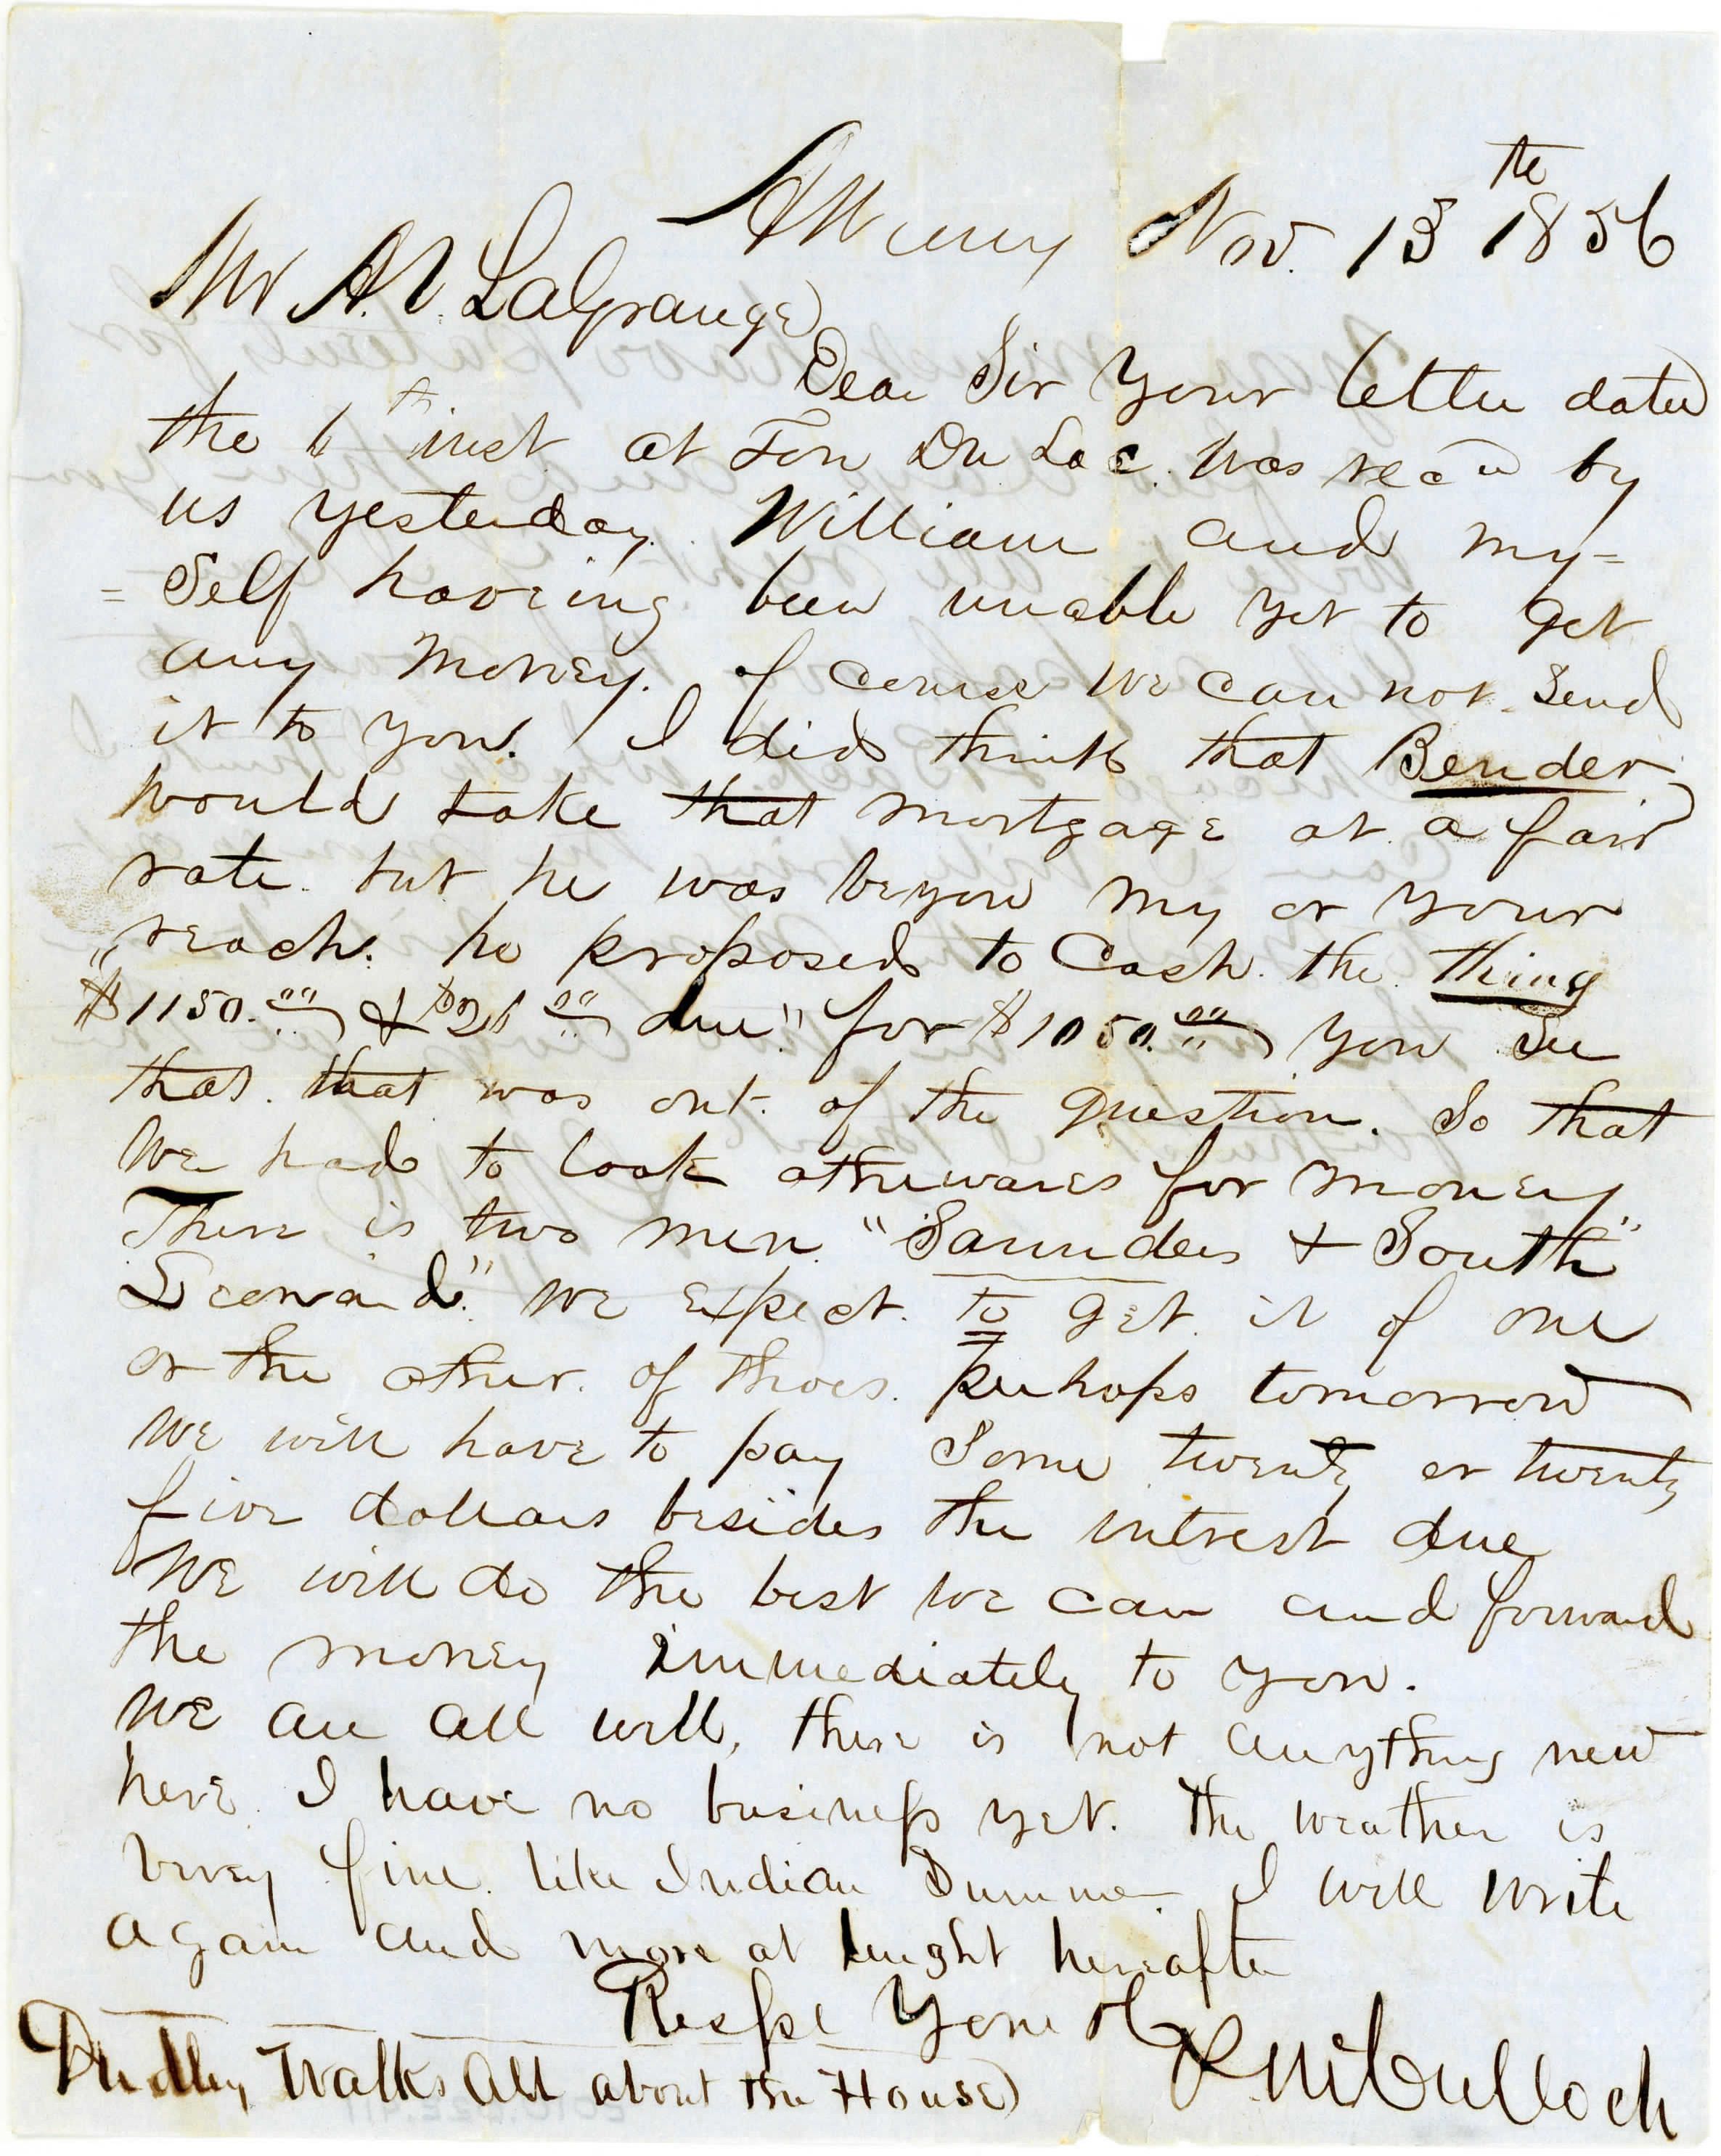 Albany Nov. 13th 1856
Mr A.V. LaGrange
Dear Sir Your letter dated
the 6th inst at Fon Du Lac. was recd by
us yesterday. William and my=
=self haveing been unable yet to get
any money. of course we can not send
it to you. I did think that Bender
would take that mortgage at a fair
rate. but he was beyon my or your
reach. he proposed to Cash. the thing
"$1150.00 & $26 00 due" for $1050.00 you see
that. that was out. of the question. So that
We had to look otherwares for money
There is two men. "Saunders & South"
"Seeward." we expect. to get. it of one
or the other. of thoes. perhaps tomorrow
we will have to pay Some twenty or twenty
five dollars besides the intrest due
We will do the best we can and forward
the money immediately to you.
We are all well, there is not anything new
here. I have no business yet. The weather is
verey fine. like Indian Summer I will write
again and more at lenght hereafter
Respe Your
R McCulloch
Dudley Walks All about the House